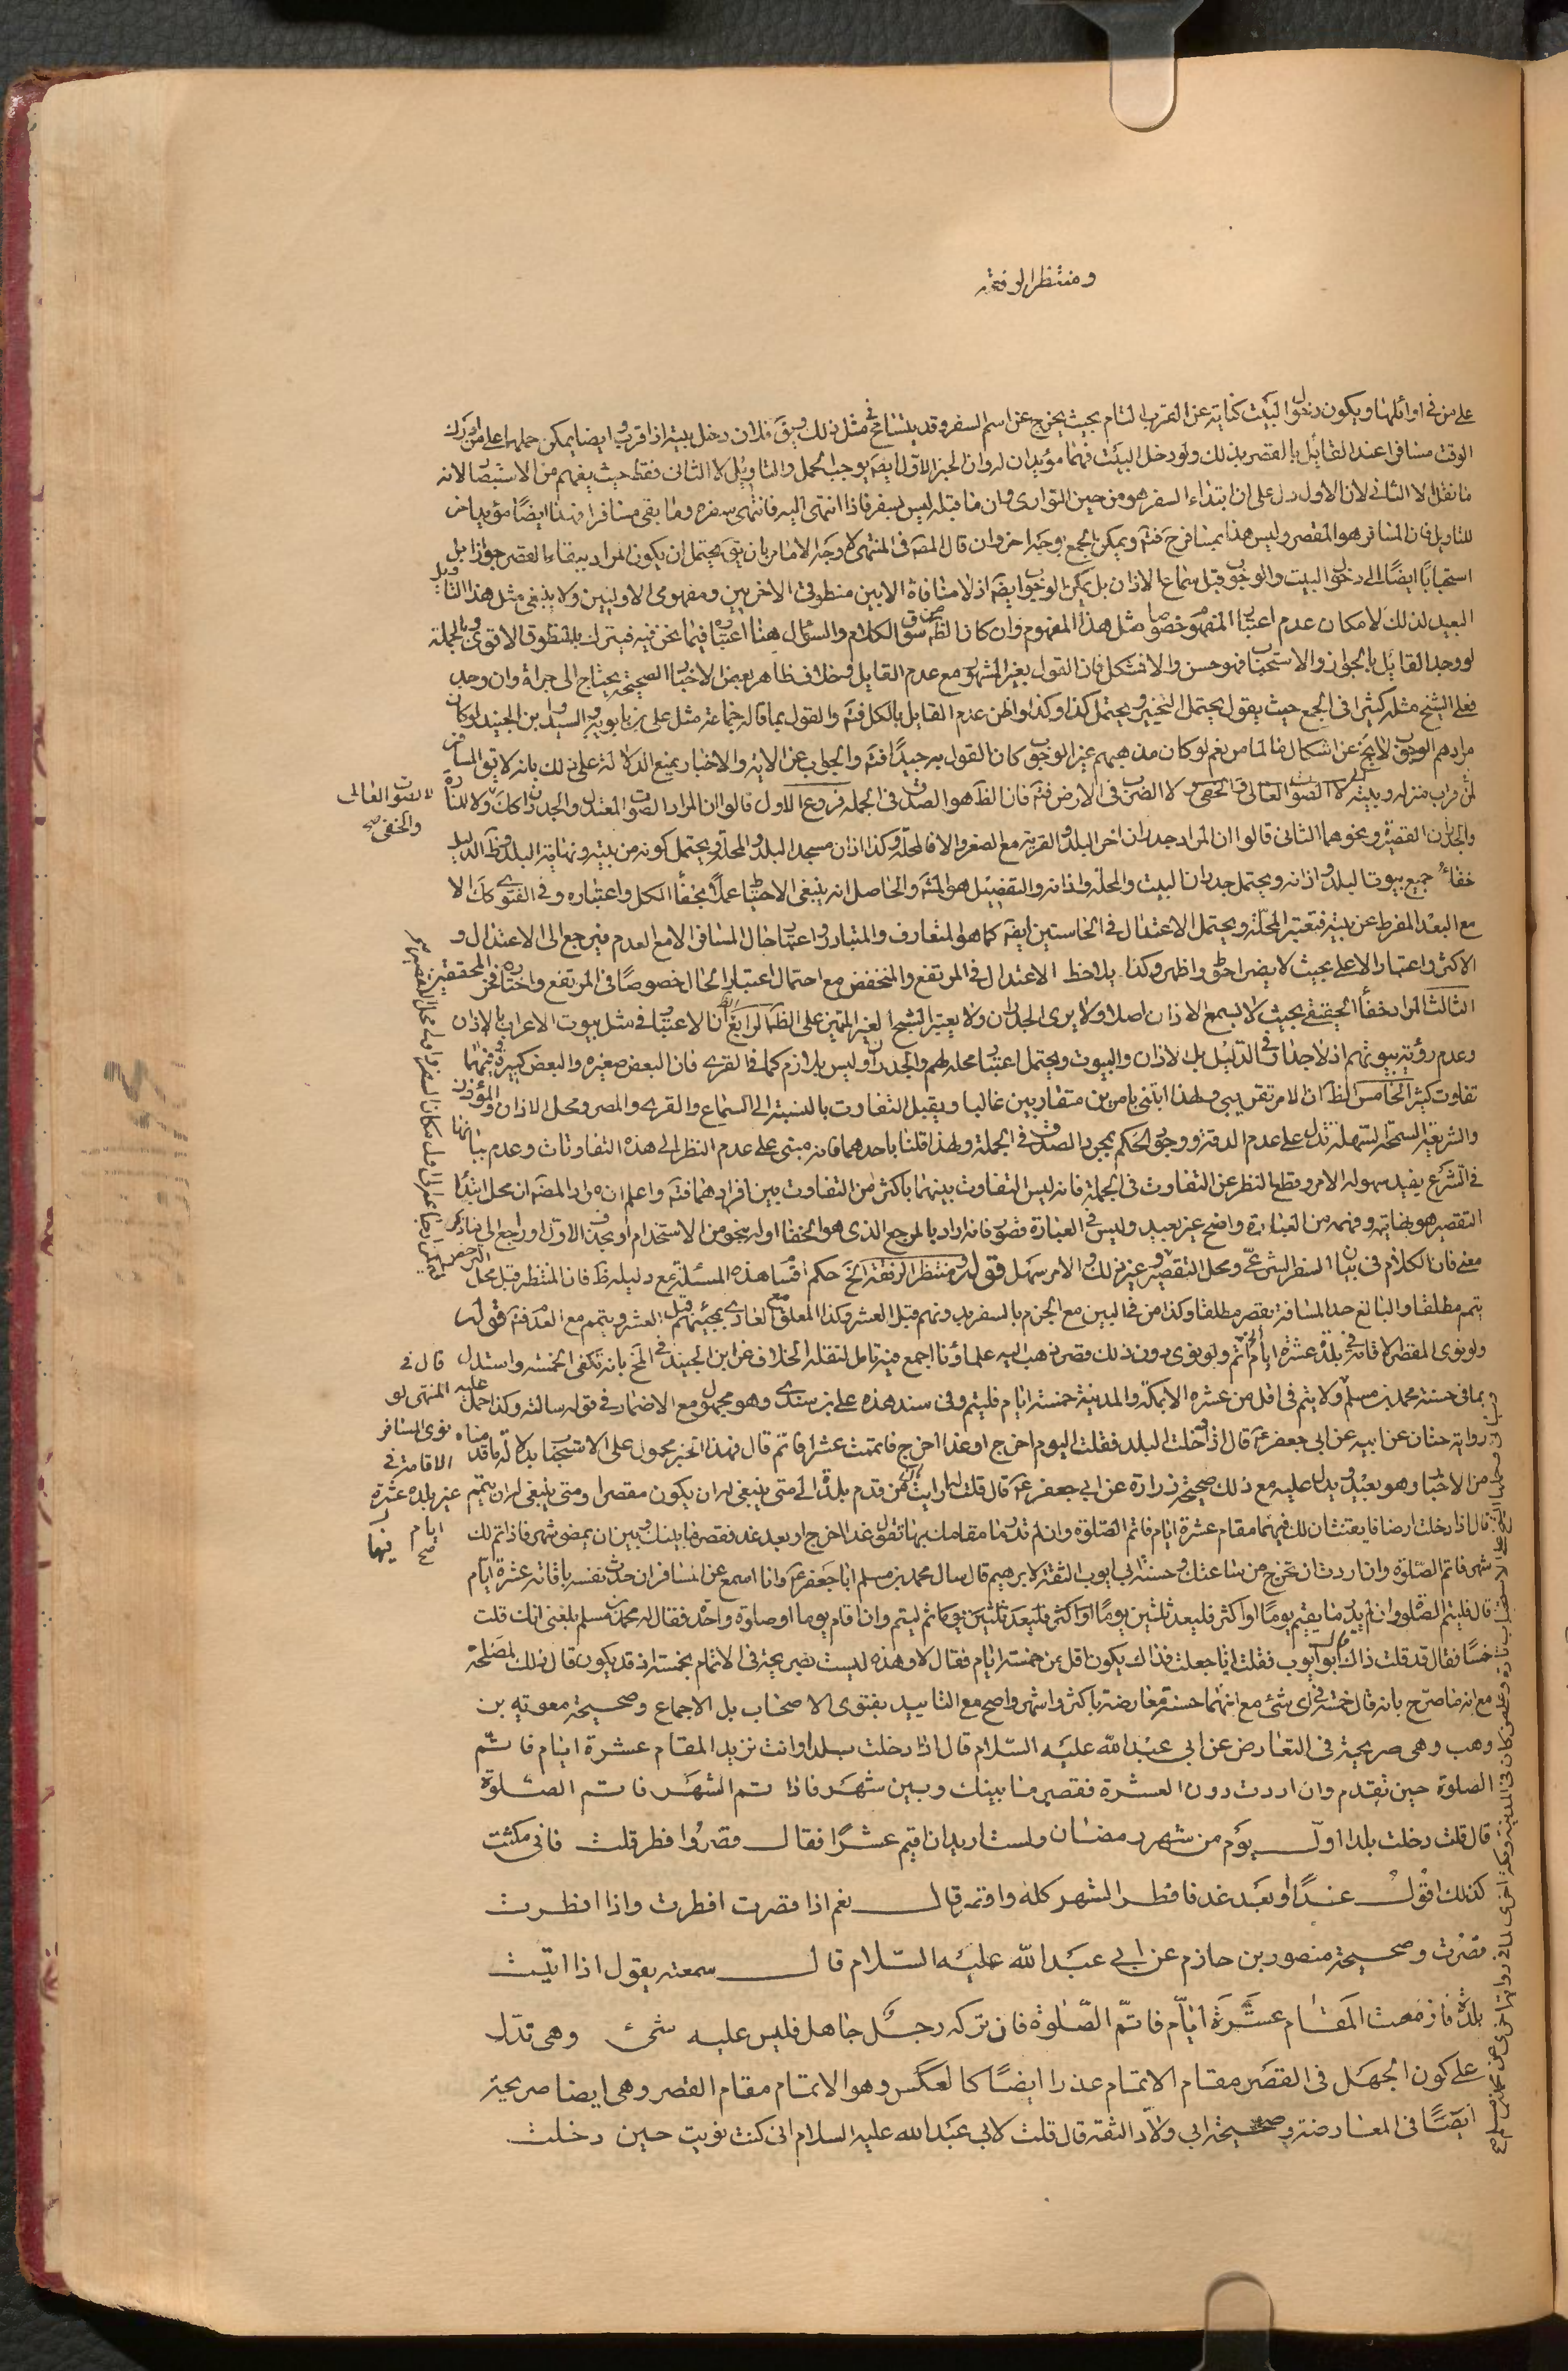 ومنتظر الرفقة
على من في اوائلها ويكون دخول البيت كناية عن القرب التام بحيث يخرج عن اسم السفر وقد يتسامح في مثل ذلك ويق فلان دخل بيته اذا قرب وايضا يمكن حملها على من ادرك
الوقت مسافرا عند القائل بالقصر بذلك ولو دخل البيت فهما مؤيدان له وان الخبر الاول ايضه يوجب الحمل والتاويل لا الثانى فقط حيث يفهم من الاستبصار لانه
ما نقل الا الثاني لان الاول دل على ان ابتداء السفر هو من حين التوارى وان ما قبله ليس بسفر فاذا انتهى اليه فانتهى سفره وما بقى مسافرا فهذا ايضًا مؤيد اخر
للتاويل فان المسافر هو المقصر وليس هذا بمسافر فتم ويمكن الجمع بوجه اخر وان قال المصه في المنتهى لا وجه الا ما مر بان يق يحتمل ان يكون المراد ببقاء القصر جوازا بل
استحبابًا ايضًا الى دخول البيت والوجوب قبل سماع الاذان بل يمكن الوجوب ايضه اذ لا منافاة الا بين منطوقى الاخريين ومفهومى الاوليين ولا ينبغى مثل هذا التاويل
البعيد لذلك لامكان عدم اعتبار المفهوم خصوصا مثل هذا المفهوم وان كان الظ من سوق الكلام والسؤال هنا اعتباره فيما نحن فيه فيترك بالمنطوق الاقوى وبالجملة
لو وجد القايل بالجواز والاستحباب فهو حسن والا فشكل فان القول بغير المشهور مع عدم القايل وخلاف ظاهر بعض الاخبار الصحيحة يحتاج الى جراة وان وجد
فعل الشيخ مثله كثيرا فى الجمع حيث يقول يحتمل التخيير ويحتمل كذا وكذا واظن عدم القايل بالكل فتم والقول بما قاله جماعة مثل على بن بابويه والسيد وابن الجنيد لو كان
مرادهم الوجوب لا يخ عن اشكال ما لما مر نعم لو كان مذهبهم غير الوجوب كان القول به جيدًا فتم والجواب عن الاية والاخبار بمنع الدلالة على ذلك بانه لا يق المسافر
لمن قرب منزله وبيته لا الصوت العالى والخفى لا الضرب فى الارض فتم فان الظ هو الصدق فى الجملة فروع الاول قالوا ان المراد الصوت المعتدل والجدران كك ولا للنارة
والجدران القصيرة ونحوهما الثانى قالوا ان المراد جدران اخر البلد والقرية مع الصغر والا فالمحلة وكذا اذان مسجد البلد والمحلة ويحتمل كونه من بيته ونهاية البلد وظ الدليل
خفاء جميع بيوت البلد واذانه ويحتمل جدران البيت والمحلة واذانه والتفصيل هو المشه والحاصل انه ينبغى الاحتياط عملًا بخفأ الكل واعتباره وفى الفتوى كك الا
مع البعد المفرط عن بيته فتعتبر المحلة ويحتمل الاعتدال فى الحاستين ايضه كما هو المتعارف والمتبادر واعتبار حال المسافر الا مع العدم فيرجع الى الاعتدال و
الاكثر واعتبار الاعلى بحيث لا يضر احق واظهر وكذا يلاحظ الاعتدال فى المرتفع والمنخفض مع احتمال اعتبار الحال خصوصًا فى المرتفع واختاره فخر المحققين
الثالث المراد خفأ الحقيقى بحيث لا يسمع الاذان اصلا ولا يرى الجدران ولا يعتبر الشبح الغير المتميز على الظ الرابع ان الاعتبار فى مثل بيوت الاعراب بالاذان
وعدم رؤية بيوتهم اذ لا جدار فى الدليل بل الاذان والبيوت ويحتمل اعتبار محله لهم والجدران وليس بلازم كما فى القرى فان البعض صغيرة والبعض كبيرة وبينهما
تفاوت كثير الخامس الظ ان الامر تقريبى ولهذا ابتنى بامرين متقاربين غالبا ويقبل التفاوت بالنسبة الى السماع والقرى والمصر ومحل الاذان والمؤذن
والشريعة السمحة السهلة تدل على عدم الدقة ووجوب الحكم بمجرد الصدق فى الجملة ولهذا قلنا باحدهما فانه مبنى على عدم النظر الى هذه التفاوتات وعدم بيانها
فى الشرع يفيد سهولة الامر وقطع النظر عن التفاوت فى الجملة فانه ليس التفاوت بينهما باكثر من التفاوت بين افرادهما فتم واعلم ان مراد المصه ان محل ابتداء
التقصير هو نهايته وفهمه من العبارة واضح غير بعيد وليس فى العبارة قصور فانه اراد بالمرجع الذى هو الخفا اوله بنحو من الاستخدام او بحذف الاول او راجع الى ما ذكر
معنى فان الكلام فى بيان السفر الشرعى ومحل التقصير وغير ذلك والامر سهل قوله ومنتظر الرفقة الخ حكم اقسام هذه المسئلة مع دليله ظ فان المنتظر قبل محل
يتم مطلقا والبالغ حد المسافة يقصر مطلقا وكذا من فى البين مع الجزم بالسفر بدونهم قبل العشر وكذا المعلق مع العادى بمجيئهم قبل العشر ويتم مع العدم فتم قوله
ولو نوى المقصر الاقامة فى بلد عشرة ايام اتم ولو نوى دون ذلك قصر ذهب اليه علماؤنا اجمع فيه تامل لنقله الخلاف عن ابن الجنيد فى المخ بانه تكفى الخمسة واستدل
بما فى حسنة محمد بن مسلم ولا يتم فى اقل من عشرة الا بمكة والمدينة خمسة ايام فليتم وفى سند هذه على بن سندى وهو مجهول مع الاضمار فى قوله سالته وكذا حمل عليه
رواية حنان عن ابيه عن ابى جعفر ع قال اذا دخلت البلد فقلت اليوم اخرج او غدا اخرج فاتممت عشرا فاتم قال فهذا الخبر محمول على الاستحباب بدلالة ما قدمناه
من الاخبار وهو بعيد ويدل عليه مع ذلك صحيحة زرارة عن ابى جعفر ع قال قلت له ارايت من قدم بلدة الى متى ينبغى له ان يكون مقصرا ومتى ينبغى له ان يتم
قال اذا دخلت ارضا فايقنت ان لك فيها مقام عشرة ايام فاتم الصلوة وان لم تدر ما مقامك بها تقول غدا اخرج او بعد غد فقصر ما بينك وبين ان يمضى شهر فاذا تم لك
شهر فاتم الصلوة وان اردت ان تخرج من ساعتك وحسنة ابى ايوب الثقة لابرهيم قال سال محمد بن مسلم ابا جعفر ع وانا اسمع عن المسافر ان حدث نفسه باقامة عشرة ايام
قال فليتم الصلوة وان لم يدر ما يقيم يومًا او اكثر فليعد ثلثين يومًا ثم ليتم وان اقام يوما او صلوة واحدة فقال له محمد بن مسلم بلغنى انك قلت
خمسًا فقال قد قلت ذاك قال ابو ايوب فقلت انا جعلت فداك يكون اقل من خمسة ايام فقال لا وهذه ليست بصريحة فى الاتمام بخمسة اذ قد يكون قال ذلك لمصلحة
مع انه ما صرّح بانه قال خمسة فى اى شئ مع انهما حسنة معارضة باكثر واشهر واصح مع التاييد بفتوى الاصحاب بل الاجماع وصحيحة معوية بن
وهب وهى صريحة فى التعارض عن ابى عبد الله عليه السلام قال اذا دخلت بلدا وانت تريد المقام عشرة ايام فاتم
الصلوة حين تقدم وان اردت دون العشرة فقصر ما بينك وبين شهر فاذا تم الشهر فاتم الصلوة
قال قلت دخلت بلدا اول يوم من شهر رمضان ولست اريد ان اقيم عشرًا فقال قصر وافطر قلت فانى مكثت
كذلك اقول غدًا او بعد غد فافطر الشهر كله واقصر قال نعم اذا قصرت افطرت واذا افطرت
قصرت وصحيحة منصور بن حازم عن ابى عبد الله عليه السلام قال سمعته يقول اذا اتيت
بلدة فازمعت المقام عشرة ايام فاتم الصلوة فان تركه رجل جاهل فليس عليه شئ وهى تدل
على كون الجهل فى القصر مقام الاتمام عذرا ايضًا كالعكس وهو الاتمام مقام القصر وهى ايضا صريحة
ايضًا فى المعارضة وصحيحة ابى ولاد الثقة قال قلت لابى عبد الله عليه السلام انى كنت نويت حين دخلت
لا الصوت العالى
والخفى صح
قال فى
المنتهى لو
نوى المسافر
الاقامة فى
غير بلده عشرة
ايام
صح